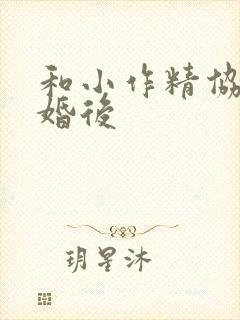 和小作精協
婚後
玥星沐